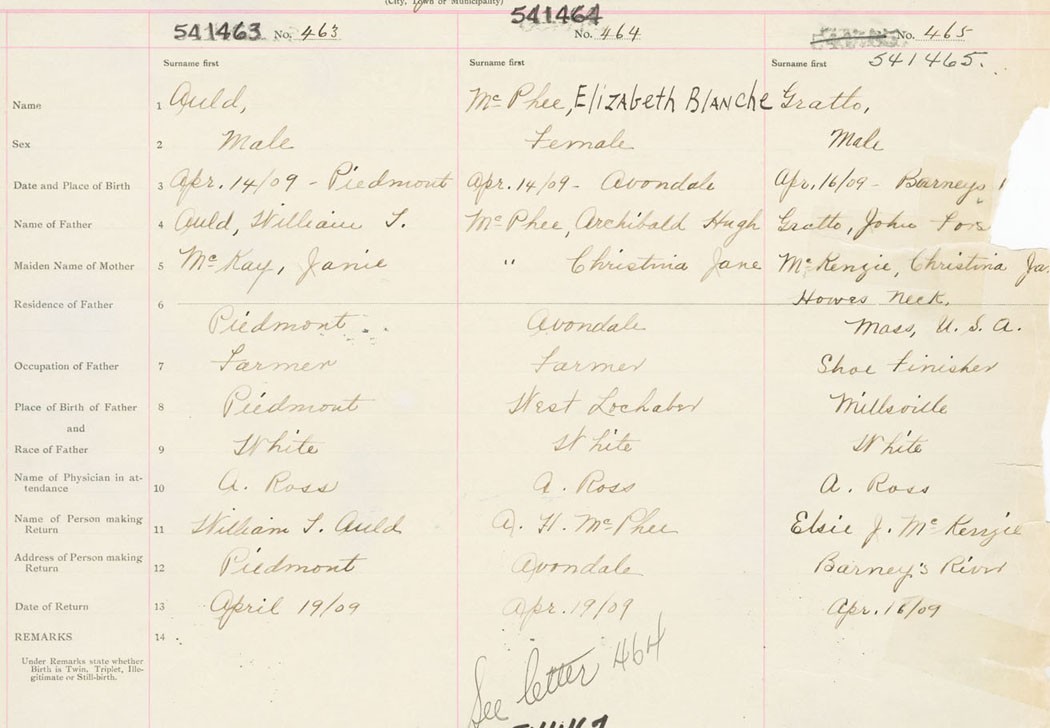 (City, Town or Municipality)
541463 No. 463 541464 No. 464 No. 465
Surname first Surname first Surname first 541465.
Name 1 Auld, McPhee, Elizabeth Blanche Gratto,
Sex 2 Male Female Male
Date and Place of Birth 3 Apr. 14/09 - Piedmont Apr. 14/09 - Avondale Apr. 16/09 - Barneys
Name of Father 4 Auld, William T. McPhee, Archibald Hugh Gratto, John
Maiden Name of Mother 5 McKay, Janie " Christina Jane McKenzie, Christina Ja
Residence of Father 6 Howes Neck,
Piedmont Avondale Mass, U. S. A.
Occupation of Father 7 Farmer Farmer Shoe Finisher
Place of Birth of Father 8 Piedmont West Lochaber Millsville
and
Race of Father 9 White White White
Name of Physician in at-
tendance 10 A. Ross A. Ross A. Ross
Name of Person making
Return 11 William T. Auld A. H. McPhee Elsie J. McKenzie
Address of Person making
Return 12 Piedmont Avondale Barney's River
Date of Return 13 April 19/09 Apr. 19/09 Apr. 16/09
REMARKS 14
Under Remarks state whether
Birth is Twin, Triplet, Ille-
gitimate or Still-birth.
See letter 464